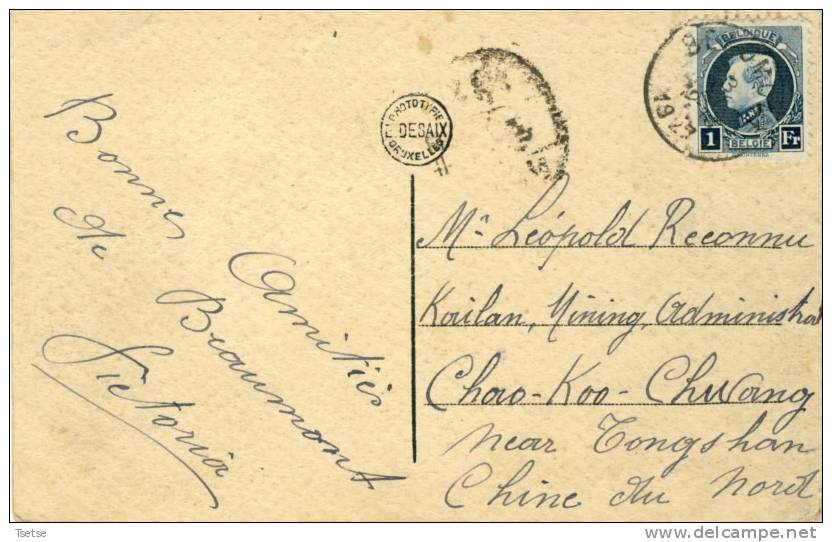 Bonnes Amitiés
de Beaumont
Victoria
PHOTOTYPIE
DESAIX
BRUXELLES
BELGIQUE
1 Fr
BELGIË
Mr Léopold Reconnu
Kailan, Mining, Administra
Chao-Koo-Chwang
near Tongshan
Chine du Nord
Tsetse
delcampe.net